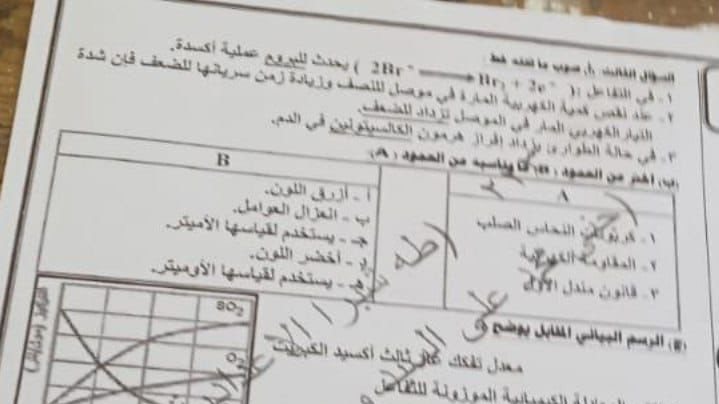 السؤال الثالث : أ) صوب ما تحته خط :
١ - في التفاعل : ( 2Br⁻ ⟶ Br₂ + 2e⁻ ) يحدث للبروم عملية أكسدة.
٢ - عند نقص كمية الكهربية المارة في موصل للنصف وزيادة زمن سريانها للضعف فإن شدة
التيار الكهربي المار في الموصل تزداد للضعف.
٣ - في حالة الطوارئ يزداد إفراز هرمون الكالسيتونين في الدم.
(ب) اختر من العمود (B) ما يناسبه من العمود (A) :
A
B
١ - كربونات النحاس الصلب
٢ - المقاومة الكهربية
٣ - قانون مندل الأول
أ - أزرق اللون.
ب - انعزال العوامل.
جـ - يستخدم لقياسها الأميتر.
د - أخضر اللون.
هـ - يستخدم لقياسها الأوميتر.
(ج) الرسم البياني المقابل يوضح
معدل تفكك غاز ثالث أكسيد الكبريت
المعادلة الكيميائية الموزونة للتفاعل
SO₂
O₂